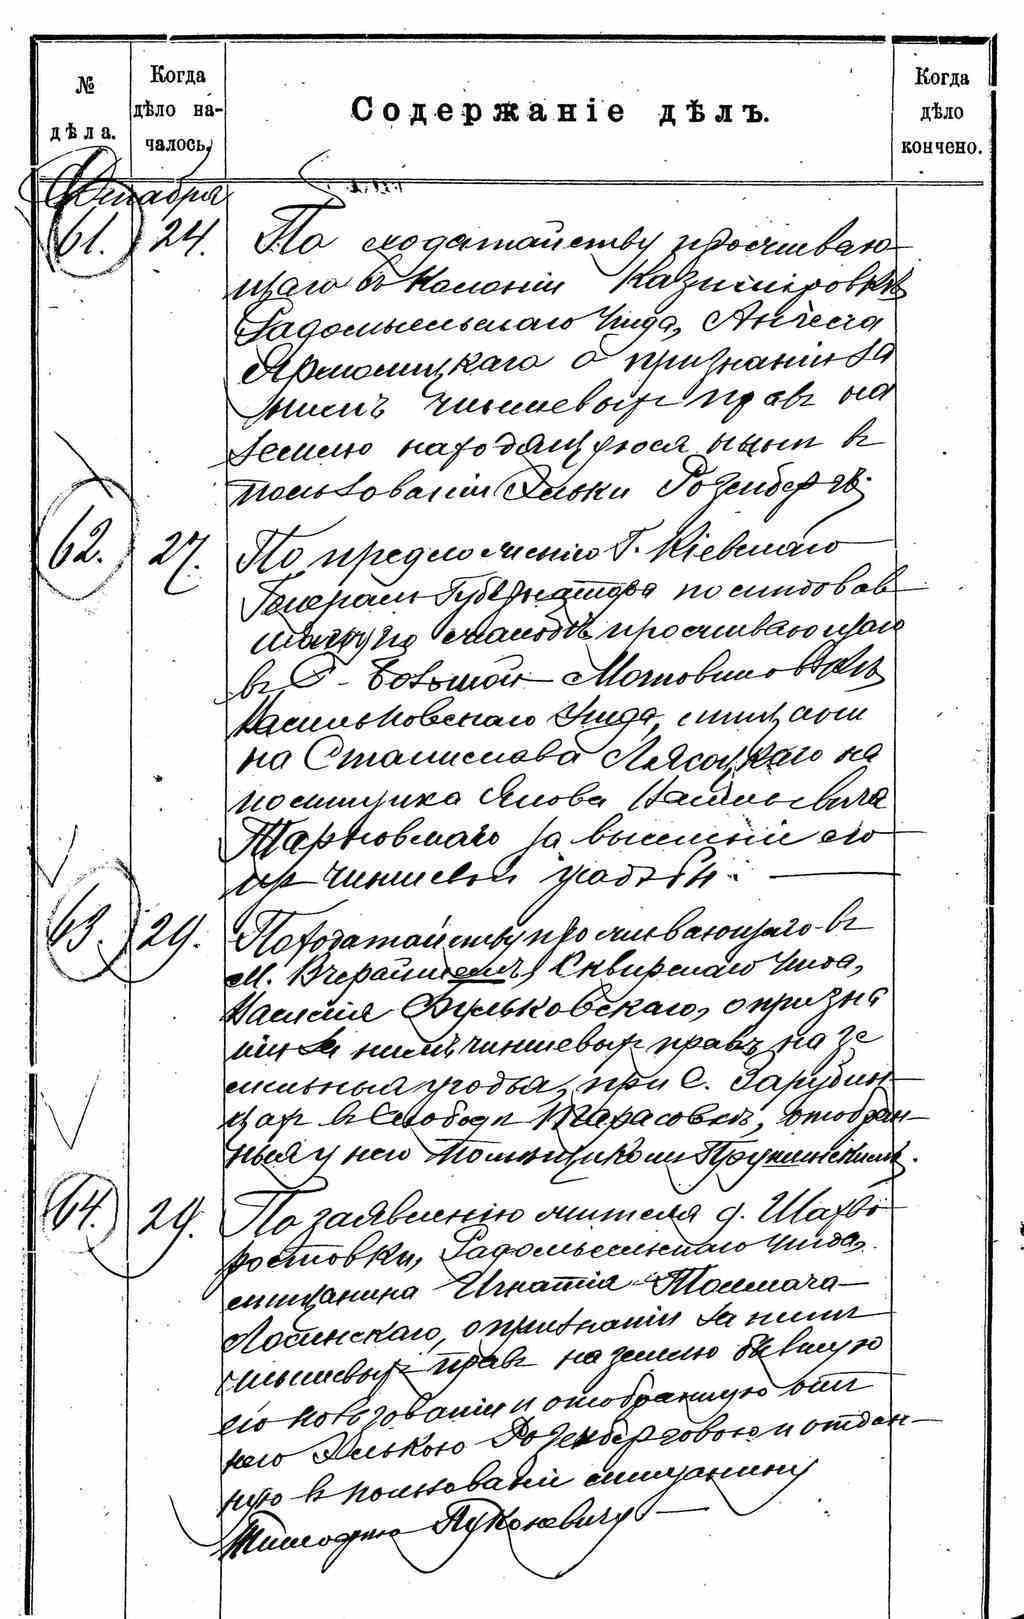 №
дѣла.
Когда
дѣло на-
чалось.
Содержаніе дѣлъ.
Когда
дѣло
кончено.
Декабря
61. 24. По ходатайству проживаю-
щаго въ колоніи Казиміровкѣ
Радомысльскаго Уѣзда,
Ярмолицкаго о признаніи за
нимъ чиншевыхъ правъ на
землю находящуюся нынѣ въ
пользованіи Эльки Розенбергъ.
62. 27. По предложенію Г. Кіевскаго
Генералъ Губернатора послѣдовав-
шему по жалобѣ проживающаго
въ с. Большой Мотовиловкѣ
Васильковскаго Уѣзда, мѣщани
на Станислава Лясоцкаго на
помѣщика Якова Васильевича
Тарновскаго за выселеніе его
изъ чиншевой усадьбы.
63. 29. По ходатайству проживающаго въ
м. Вчерайшемъ, Сквирскаго Уѣзда,
Василія Фульковскаго, о призна
ніи за нимъ чиншевыхъ правъ на зе
мельныя угодья, при с. Зарубин-
цахъ въ Слободѣ Тарасовкѣ, отобран-
ныя у него помѣщикомъ Прушинскимъ.
64. 29. По заявленію жителя д. Шахво
ростовки, Радомысльскаго Уѣзда,
мѣщанина Игнатія Толмача-
Лосинскаго, о признаніи за нимъ
чиншевыхъ правъ на землю бывшую
его пользованіи и отобранную отъ
него Элькою Розенберговою и отдан-
ную въ пользованіе мѣщанину
Тимофею Луконевичу